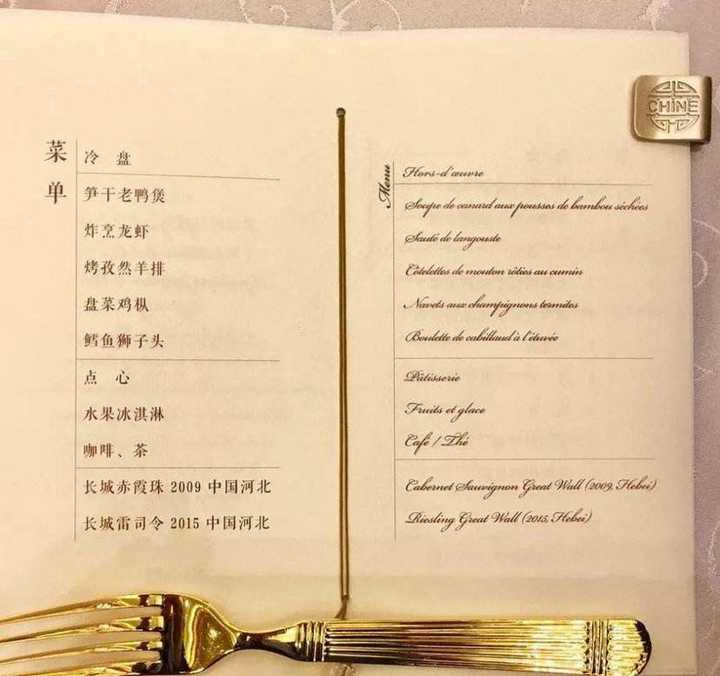 菜单
冷 盘
笋干老鸭煲
炸烹龙虾
烤孜然羊排
盘菜鸡枞
鳕鱼狮子头
点 心
水果冰淇淋
咖啡、茶
长城赤霞珠 2009 中国河北
长城雷司令 2015 中国河北
CHINE
Menu
Hors-d'œuvre
Soupe de canard aux pousses de bambou séchées
Sauté de langouste
Côtelettes de mouton rôties au cumin
Navets aux champignons termites
Boulette de cabillaud à l'étuvée
Pâtisserie
Fruits et glace
Café / Thé
Cabernet Sauvignon Great Wall (2009, Hebei)
Riesling Great Wall (2015, Hebei)